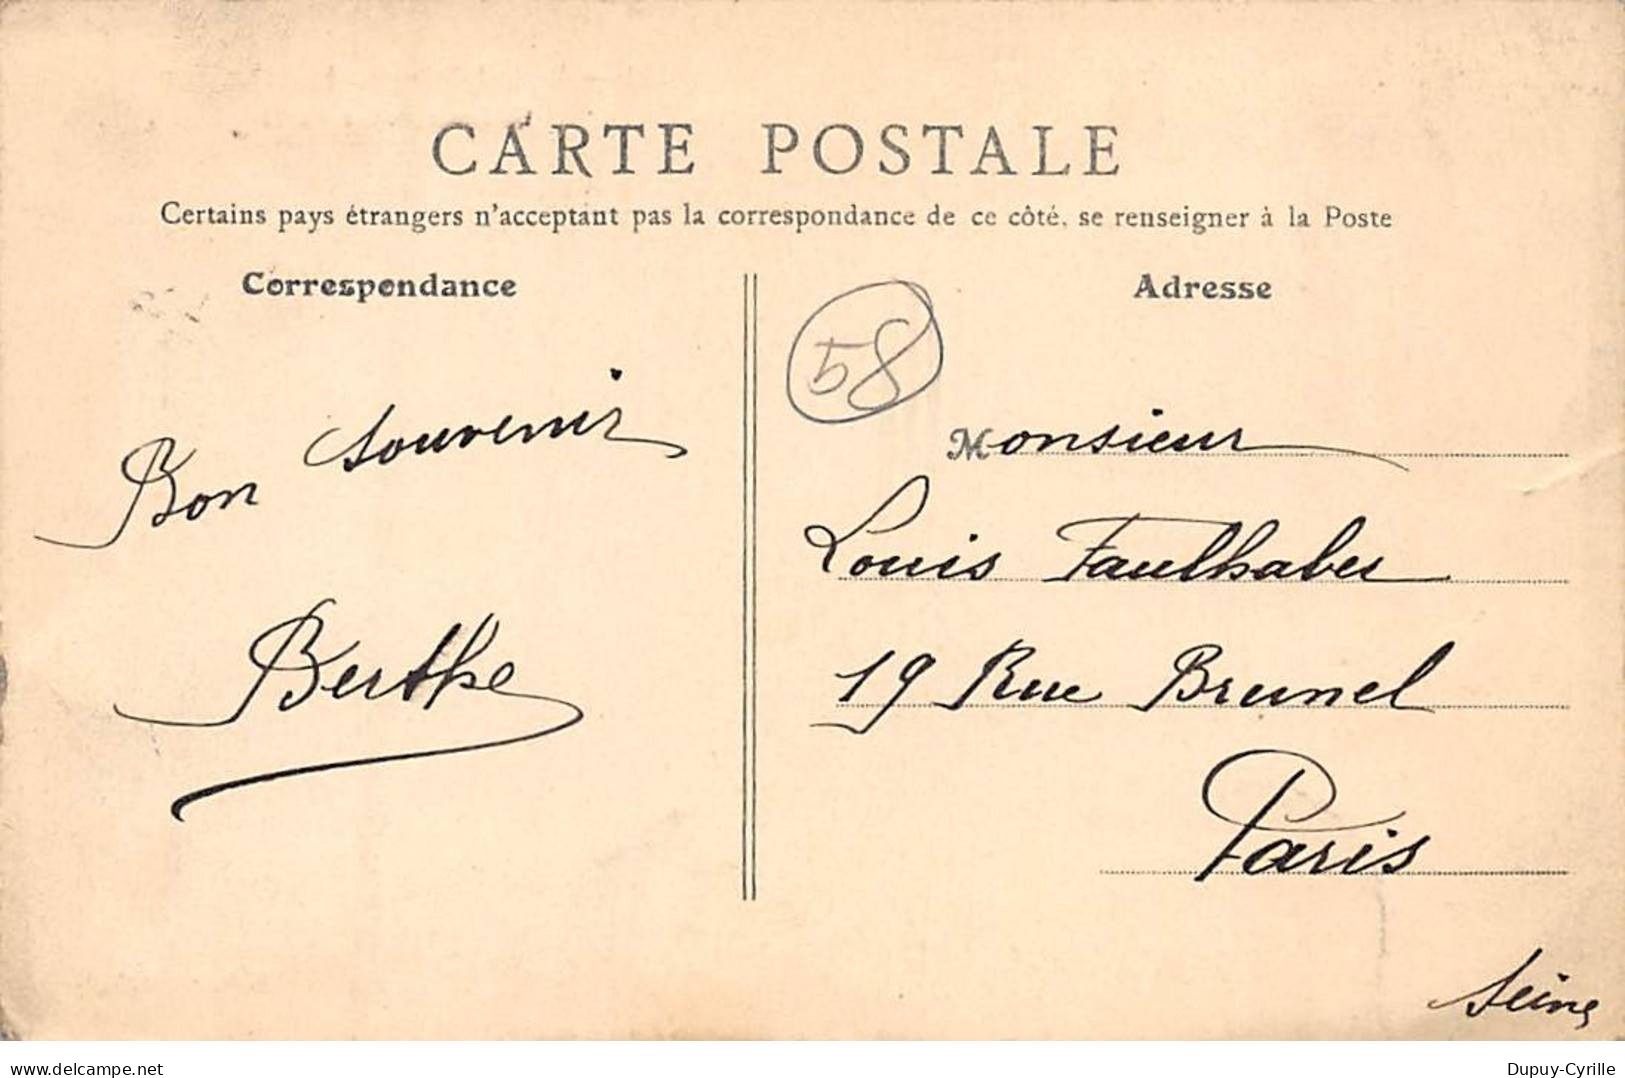 CARTE POSTALE
Certains pays étrangers n'acceptant pas la correspondance de ce côté, se renseigner à la Poste
Correspondance
Bon souvenir
Berthe
Adresse
58
Monsieur
Louis Faulhaber
19 Rue Brunel
Paris
Seine
www.delcampe.net
Dupuy-Cyrille